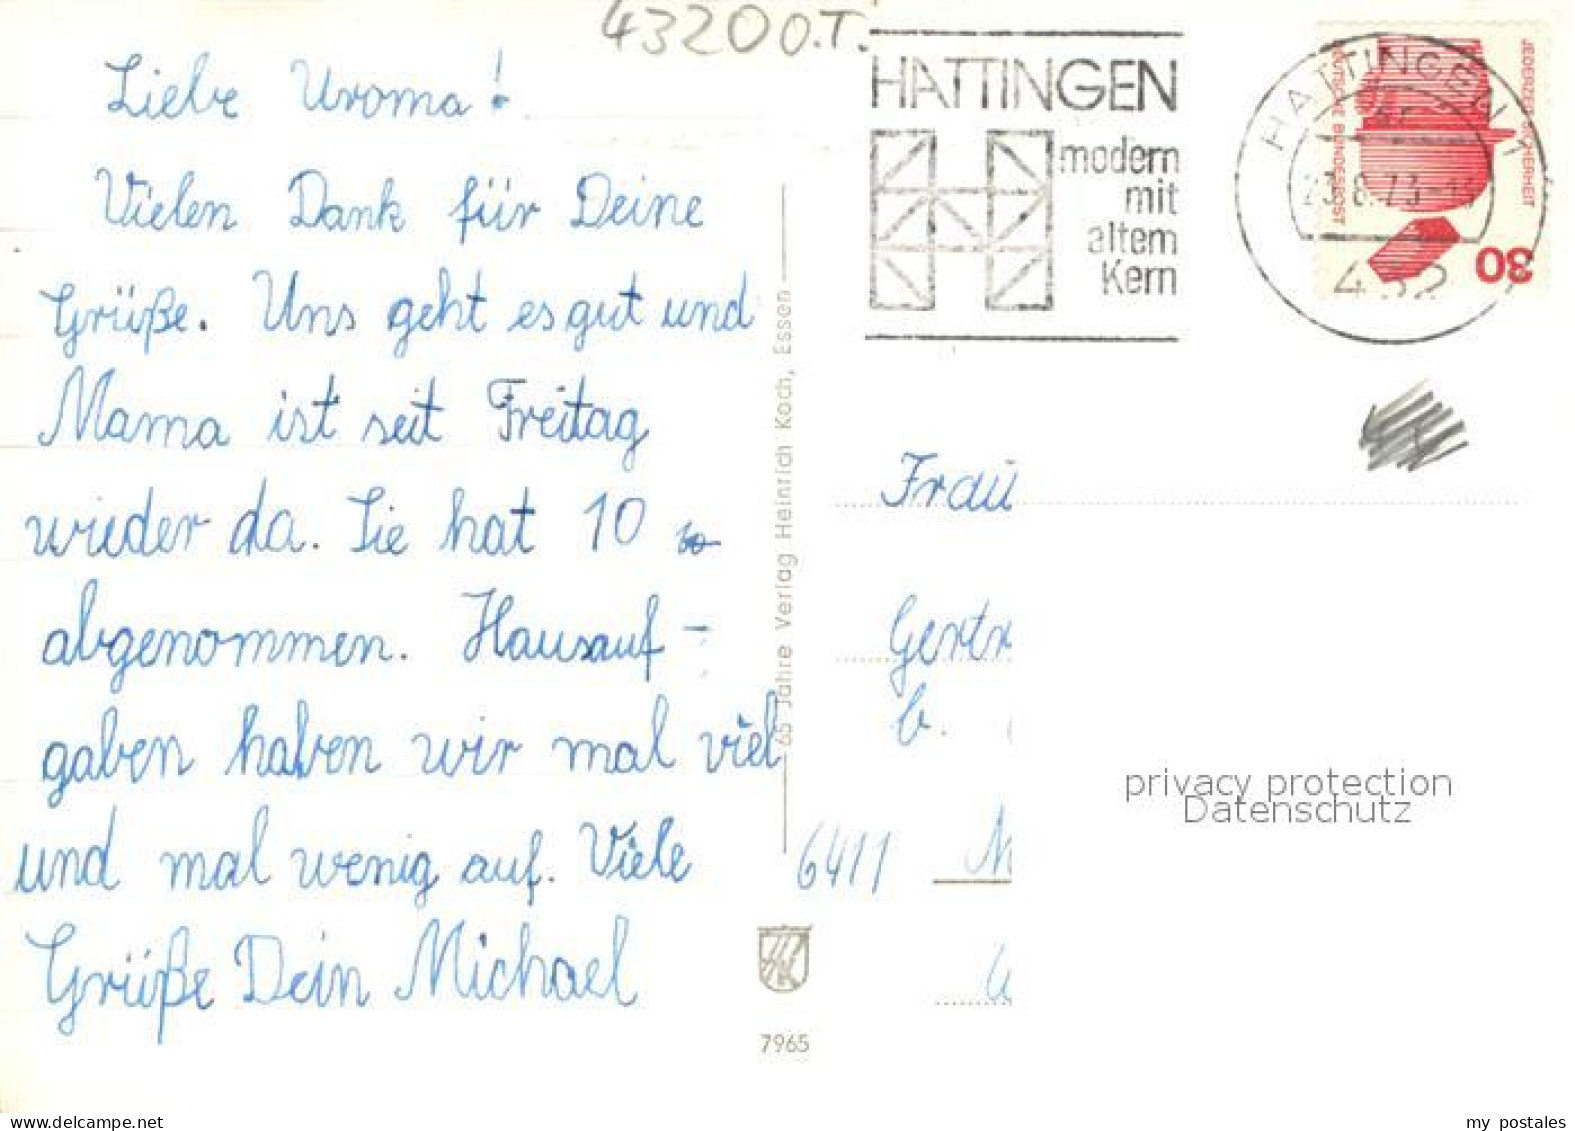 43200.T.
Liebe Uroma!
Vielen Dank für Deine
Grüße. Uns geht es gut und
Mama ist seit Freitag
wieder da. Sie hat 10
abgenommen. Hausauf-
gaben haben wir mal viel
und mal wenig auf. Viele
Grüße Dein Michael
65 Jahre Verlag Heinrich Koch, Essen
7965
HATTINGEN
modern
mit
altem
Kern
HATTINGEN 1
23.8.73-
432
JEDERZEIT SICHERHEIT
DEUTSCHE BUNDESPOST
30
Frau
Gertr
b.
6411 M
privacy protection
Datenschutz
www.delcampe.net
my_postales